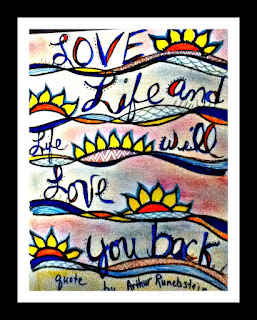 LOVE
Life and
Life will
Love
you back
quote by Arthur Runebstein